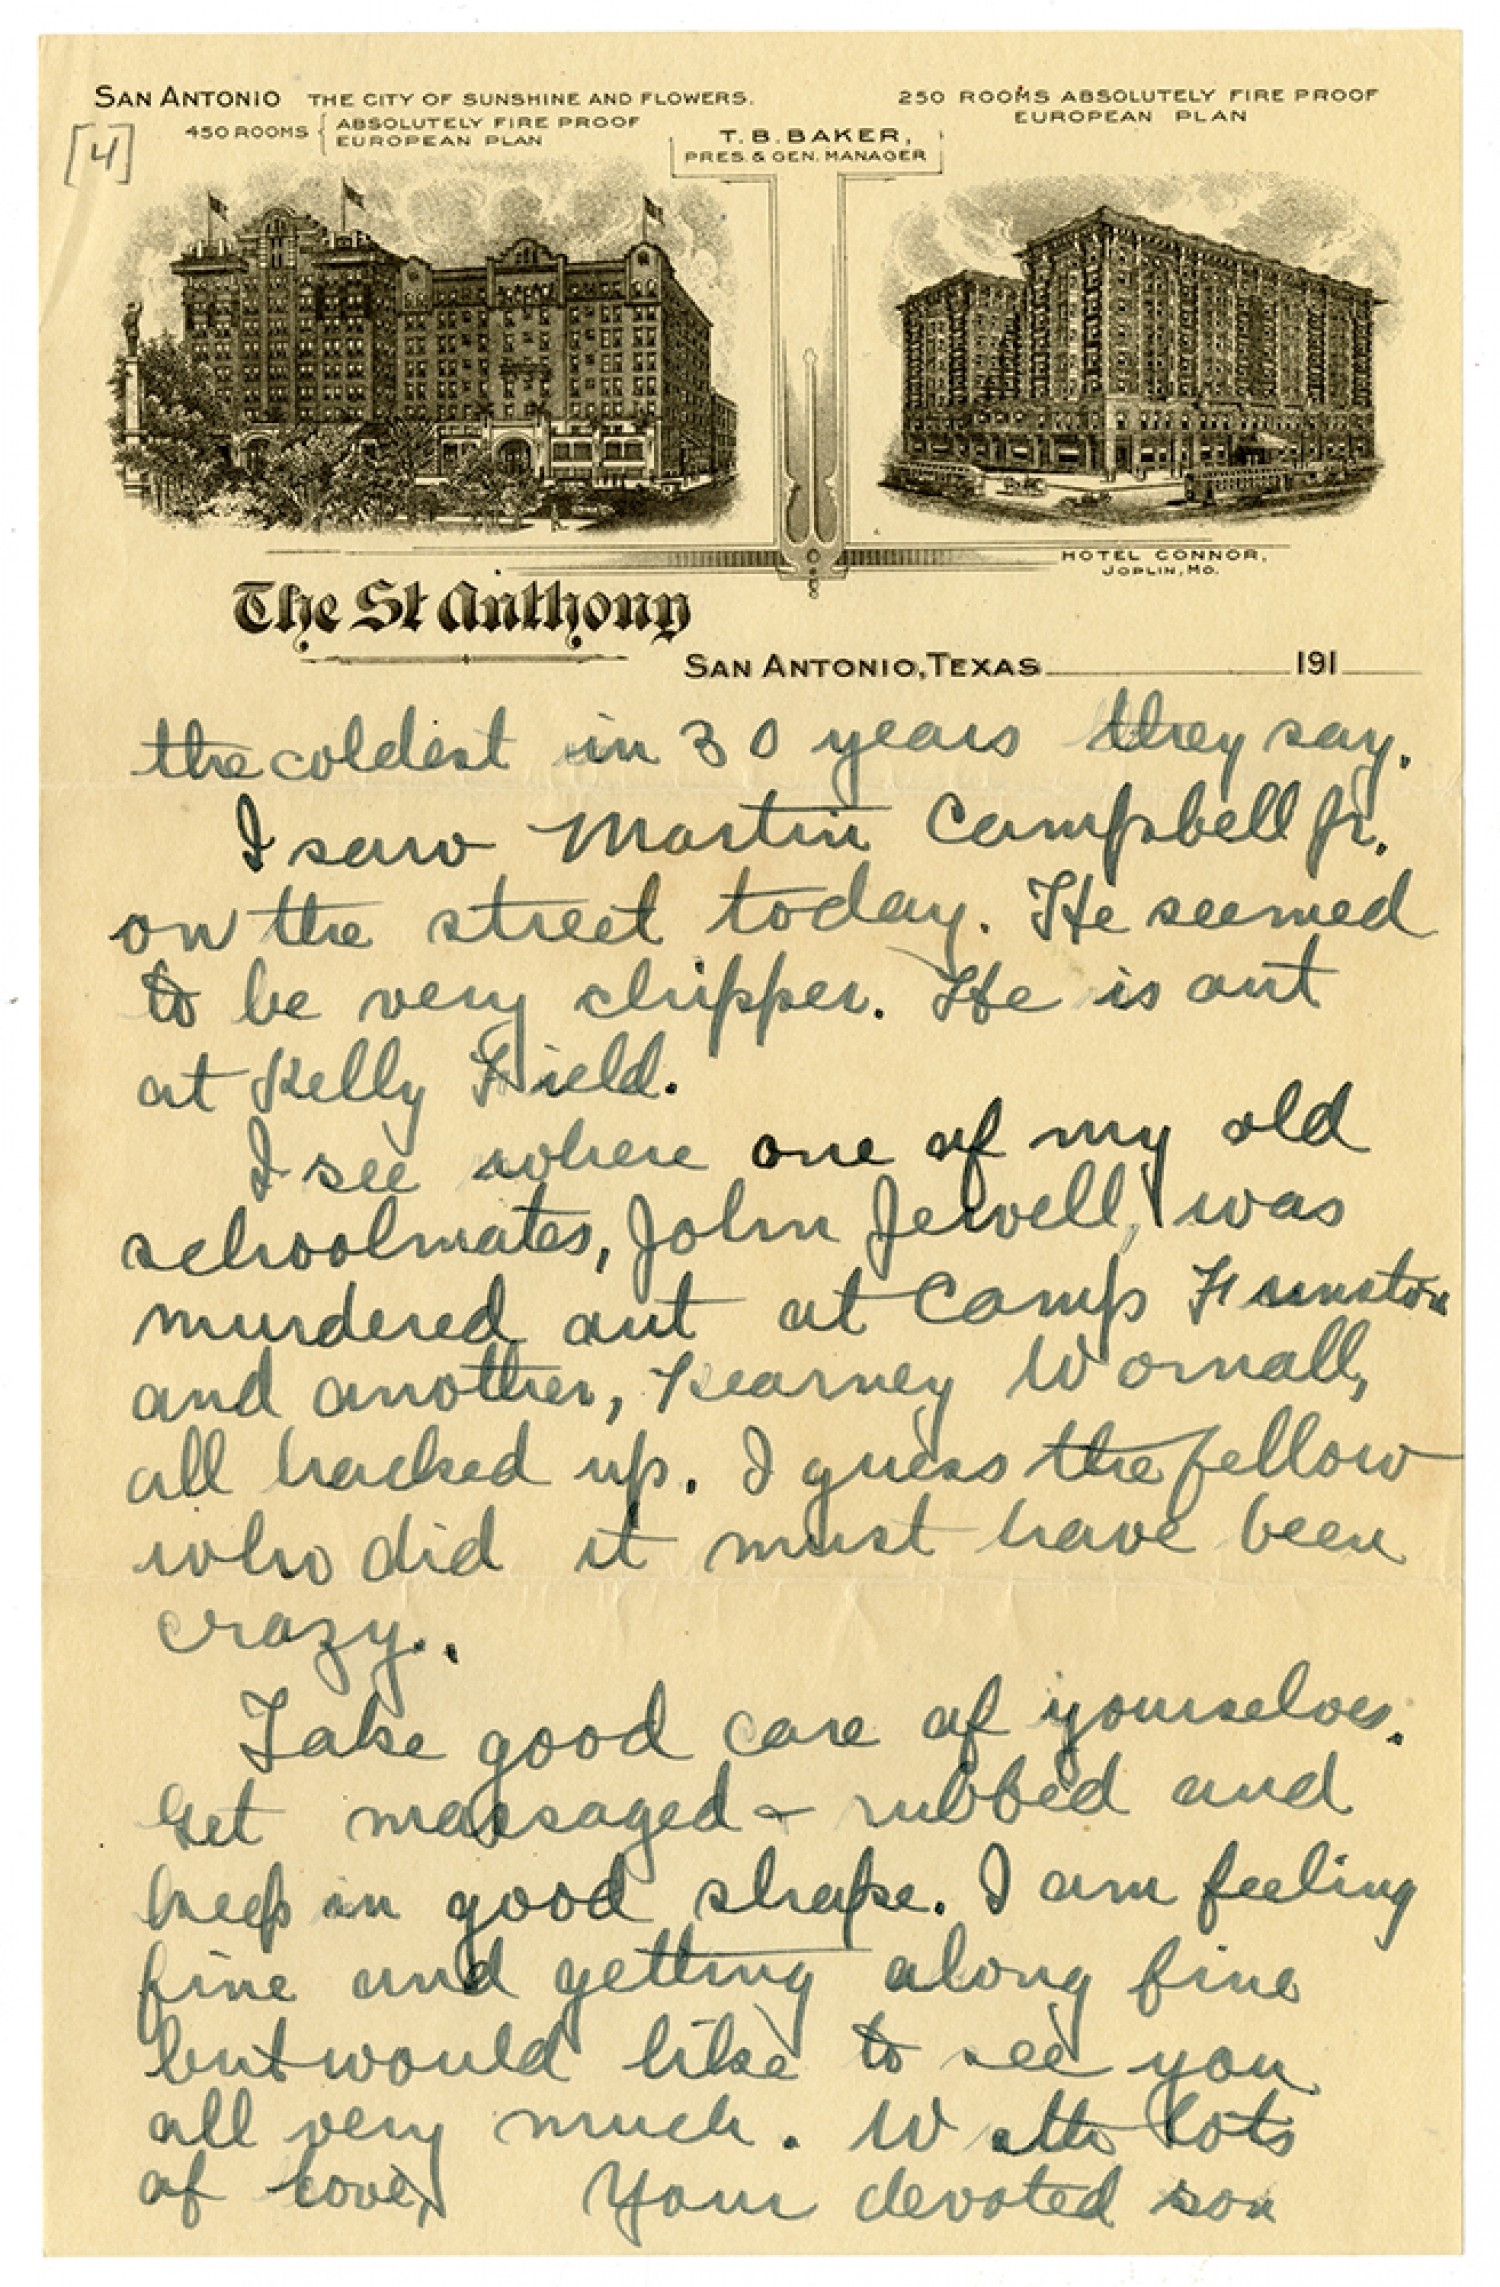 SAN ANTONIO THE CITY OF SUNSHINE AND FLOWERS.
450 ROOMS { ABSOLUTELY FIRE PROOF
EUROPEAN PLAN
[4]
T. B. BAKER,
PRES. & GEN. MANAGER
250 ROOMS ABSOLUTELY FIRE PROOF
EUROPEAN PLAN
HOTEL CONNOR,
JOPLIN, MO.
The St Anthony
SAN ANTONIO, TEXAS 191
the coldest in 30 years they say.
I saw Martin Campbell Jr.
on the street today. He seemed
to be very chipper. He is out
at Kelly Field.
I see where one of my old
schoolmates, John Jewell, was
murdered out at Camp Funston
and another, Kearney Wornall,
all hacked up. I guess the fellow
who did it must have been
crazy..
Take good care of yourselves.
Get massaged & rubbed and
keep in good shape. I am feeling
fine and getting along fine
but would like to see you
all very much. With lots
of love, Your devoted son